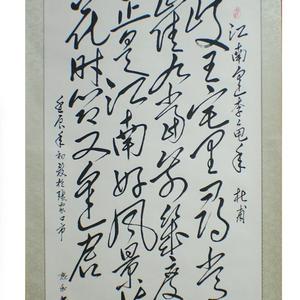 江南逢李龟年 杜甫
岐王宅里寻常
崔九堂前几度
正是江南好风景落
花时节又逢君
壬辰年初夏於张家口市